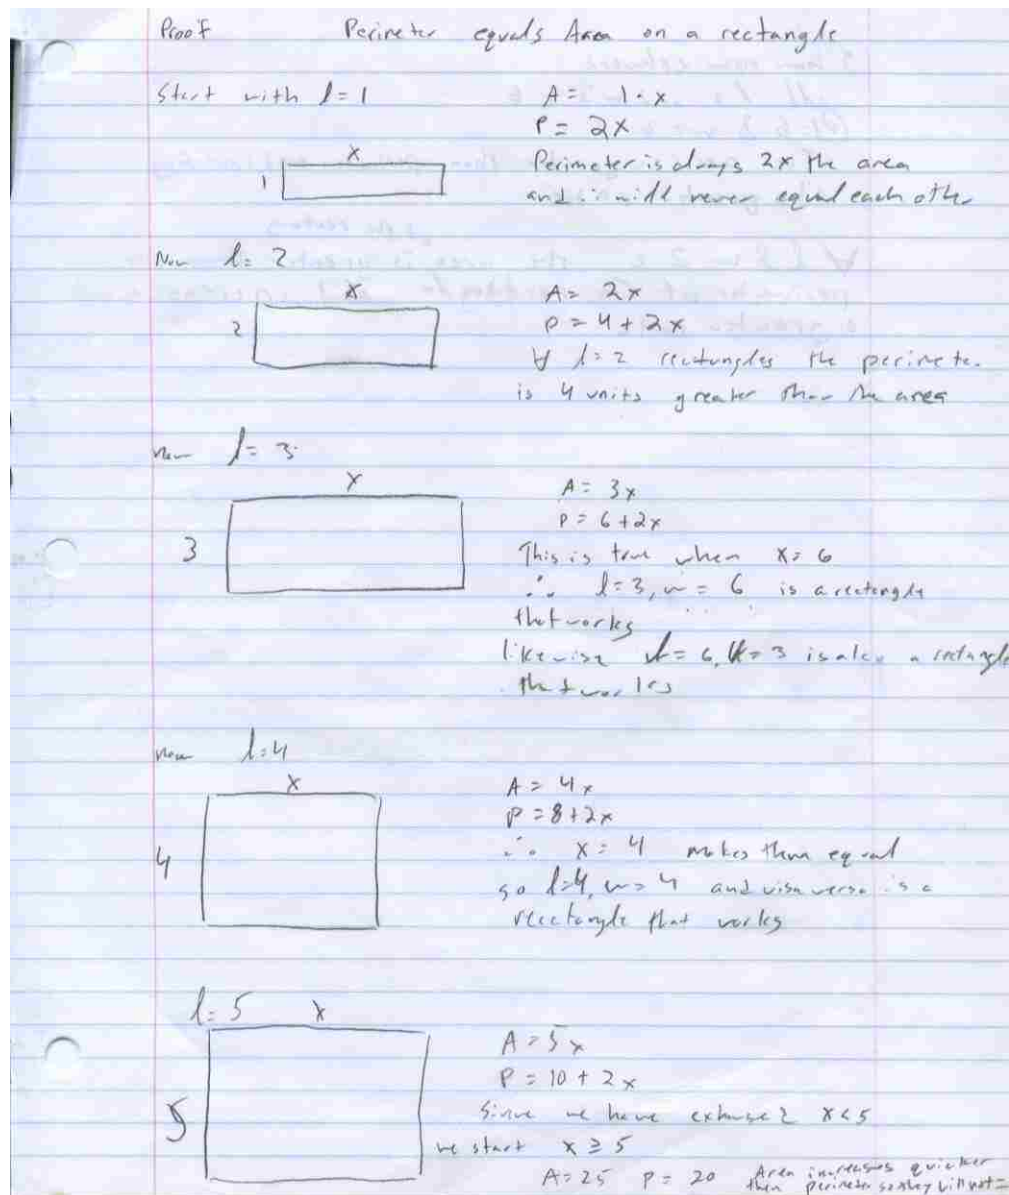 Proof Perimeter equals Area on a rectangle
Start with l=1
A= 1·x
P= 2x
x
1
Perimeter is always 2x the area
and will never equal each other
Now l= 2
x
2
A= 2x
P= 4+2x
∀ l=2 rectangles the perimeter
is 4 units greater than the area
Now l= 3
x
3
A= 3x
P= 6+2x
This is true when x=6
∴ l=3, w= 6 is a rectangle
that works
likewise l=6, w=3 is also a rectangle
that works
Now l=4
x
4
A= 4x
P=8+2x
∴ x=4 makes them equal
so l=4, w=4 and visa versa is a
rectangle that works
l=5 x
5
A=5x
P=10+2x
Since we have exhausted x<5
we start x≥5
A=25 P=20 Area increases quicker
than perimeter so they will not =